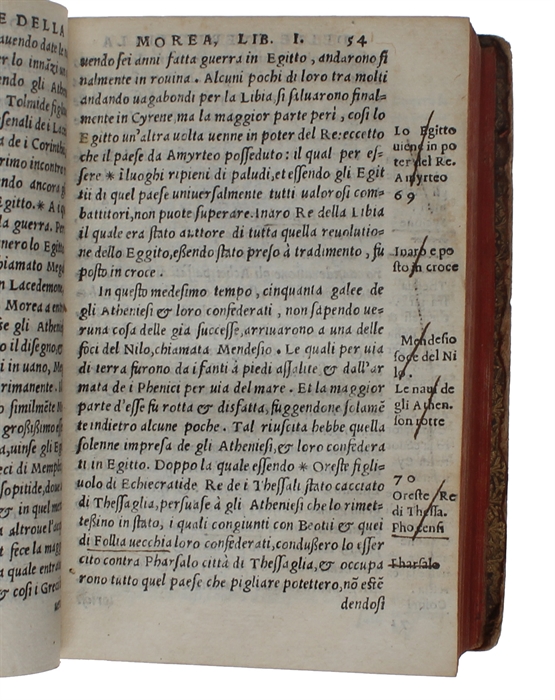 E DELLA
auendo date le n
er lo innāzi un
endo gli Athen
Tolmide figl
senali de i Lace
de i Corinthi
rimo incontro
endo ancora g
Egitto.* A i q
a guerra. Per
nero lo Egitto
hiamato Mega
n Lacedemon
Morea a entr
ße gli Athenie
o il disegno, &
i in uano, Me
rimanente. Il
o similmēte N
großißimo e
a, uinse gli Eg
eci di Memph
sopitide, doue i
, & in quel me
a altroue l'acq
t fece la mag
a quale entra
& cosi i Greci
MOREA, LIB. I. 54
uendo sei anni fatta guerra in Egitto, andarono fi
nalmente in rouina. Alcuni pochi di loro tra molti
andando uagabondi per la Libia si saluarono final-
mente in Cyrene, ma la maggior parte perì, così lo
Egitto un'altra uolta uenne in poter del Re: eccetto
che il paese da Amyrteo posseduto: il qual per es-
sere * i luoghi ripieni di paludi, et essendo gli Egit
tii di quel paese uniuersalmente tutti ualorosi com-
battitori, non puote superare. Inaro Re della Libia
il quale era stato auttore di tutta quella reuolutio-
ne dello Eggitto, eßendo stato preso à tradimento, fu
posto in croce.
In questo medesimo tempo, cinquanta galee de
gli Atheniesi & loro confederati, non sapendo ue-
runa cosa delle gia successe, arriuarono a una delle
foci del Nilo, chiamata Mendesio. Le quali per uia
di terra furono da i fanti à piedi assalite & dall'ar
mata de i Phenici per uia del mare. Et la maggior
parte d'esse fu rotta & disfatta, fuggendone solamē
te indietro alcune poche. Tal riuscita hebbe quella
solenne impresa de gli Atheniesi, & loro confedera
ti in Egitto. Doppo la quale essendo * Oreste figli-
uolo di Echiecratide Re de i Thessali stato cacciato
di Thessaglia, persuase à gli Atheniesi che lo rimet-
teßino in stato, i quali congiunti con Beotii & quei
di Follia uecchia loro confederati, condußero lo esser
cito contra Pharsalo città di Thessaglia, & occupa
rono tutto quel paese che pigliare potettero, nō estē
dendosi
Lo Egitto
uiene in po
ter del Re.
Amyrteo
69
Inaro è po
sto in croce
Mendesio
foce del Ni
lo.
Le naui de
gli Athen.
son rotte
70
Oreste Re
di Thessa.
Phocensi
Pharsalo